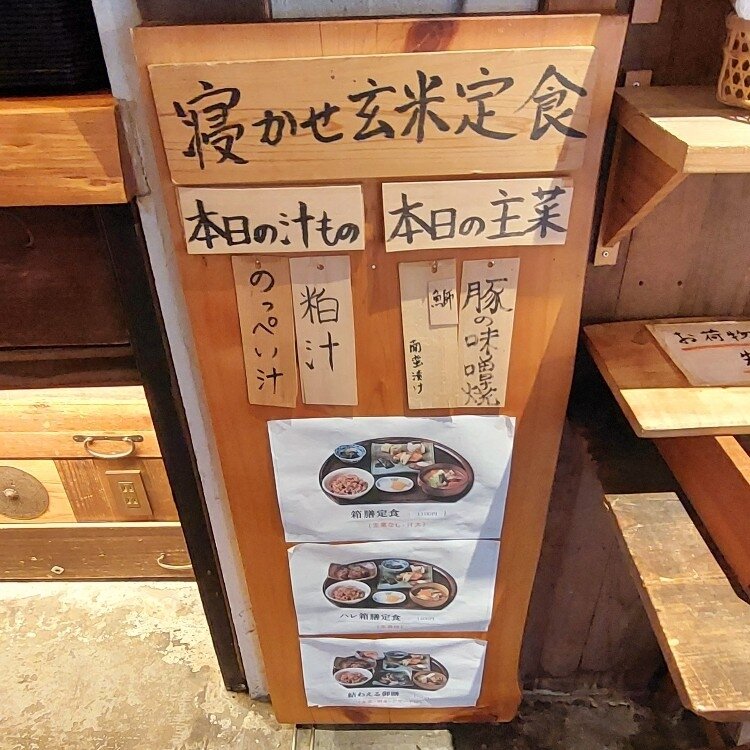 寝かせ玄米定食
本日の汁もの
本日の主菜
のっぺい汁
粕汁
鰤
南蛮漬け
豚の味噌焼
箱膳定食
(主菜なし・汁大)
ハレ箱膳定食
結わえる御膳
お荷物